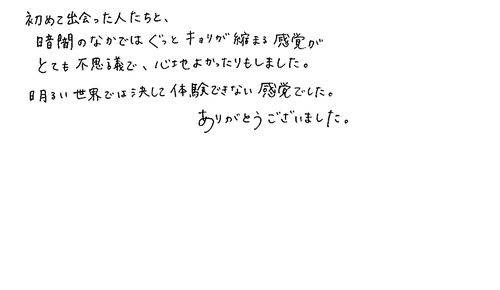 初めて出会った人たちと、
暗闇のなかではぐっとキョリが縮まる感覚が
とても不思議で、心地よかったりもしました。
明るい世界では決して体験できない感覚でした。
ありがとうございました。